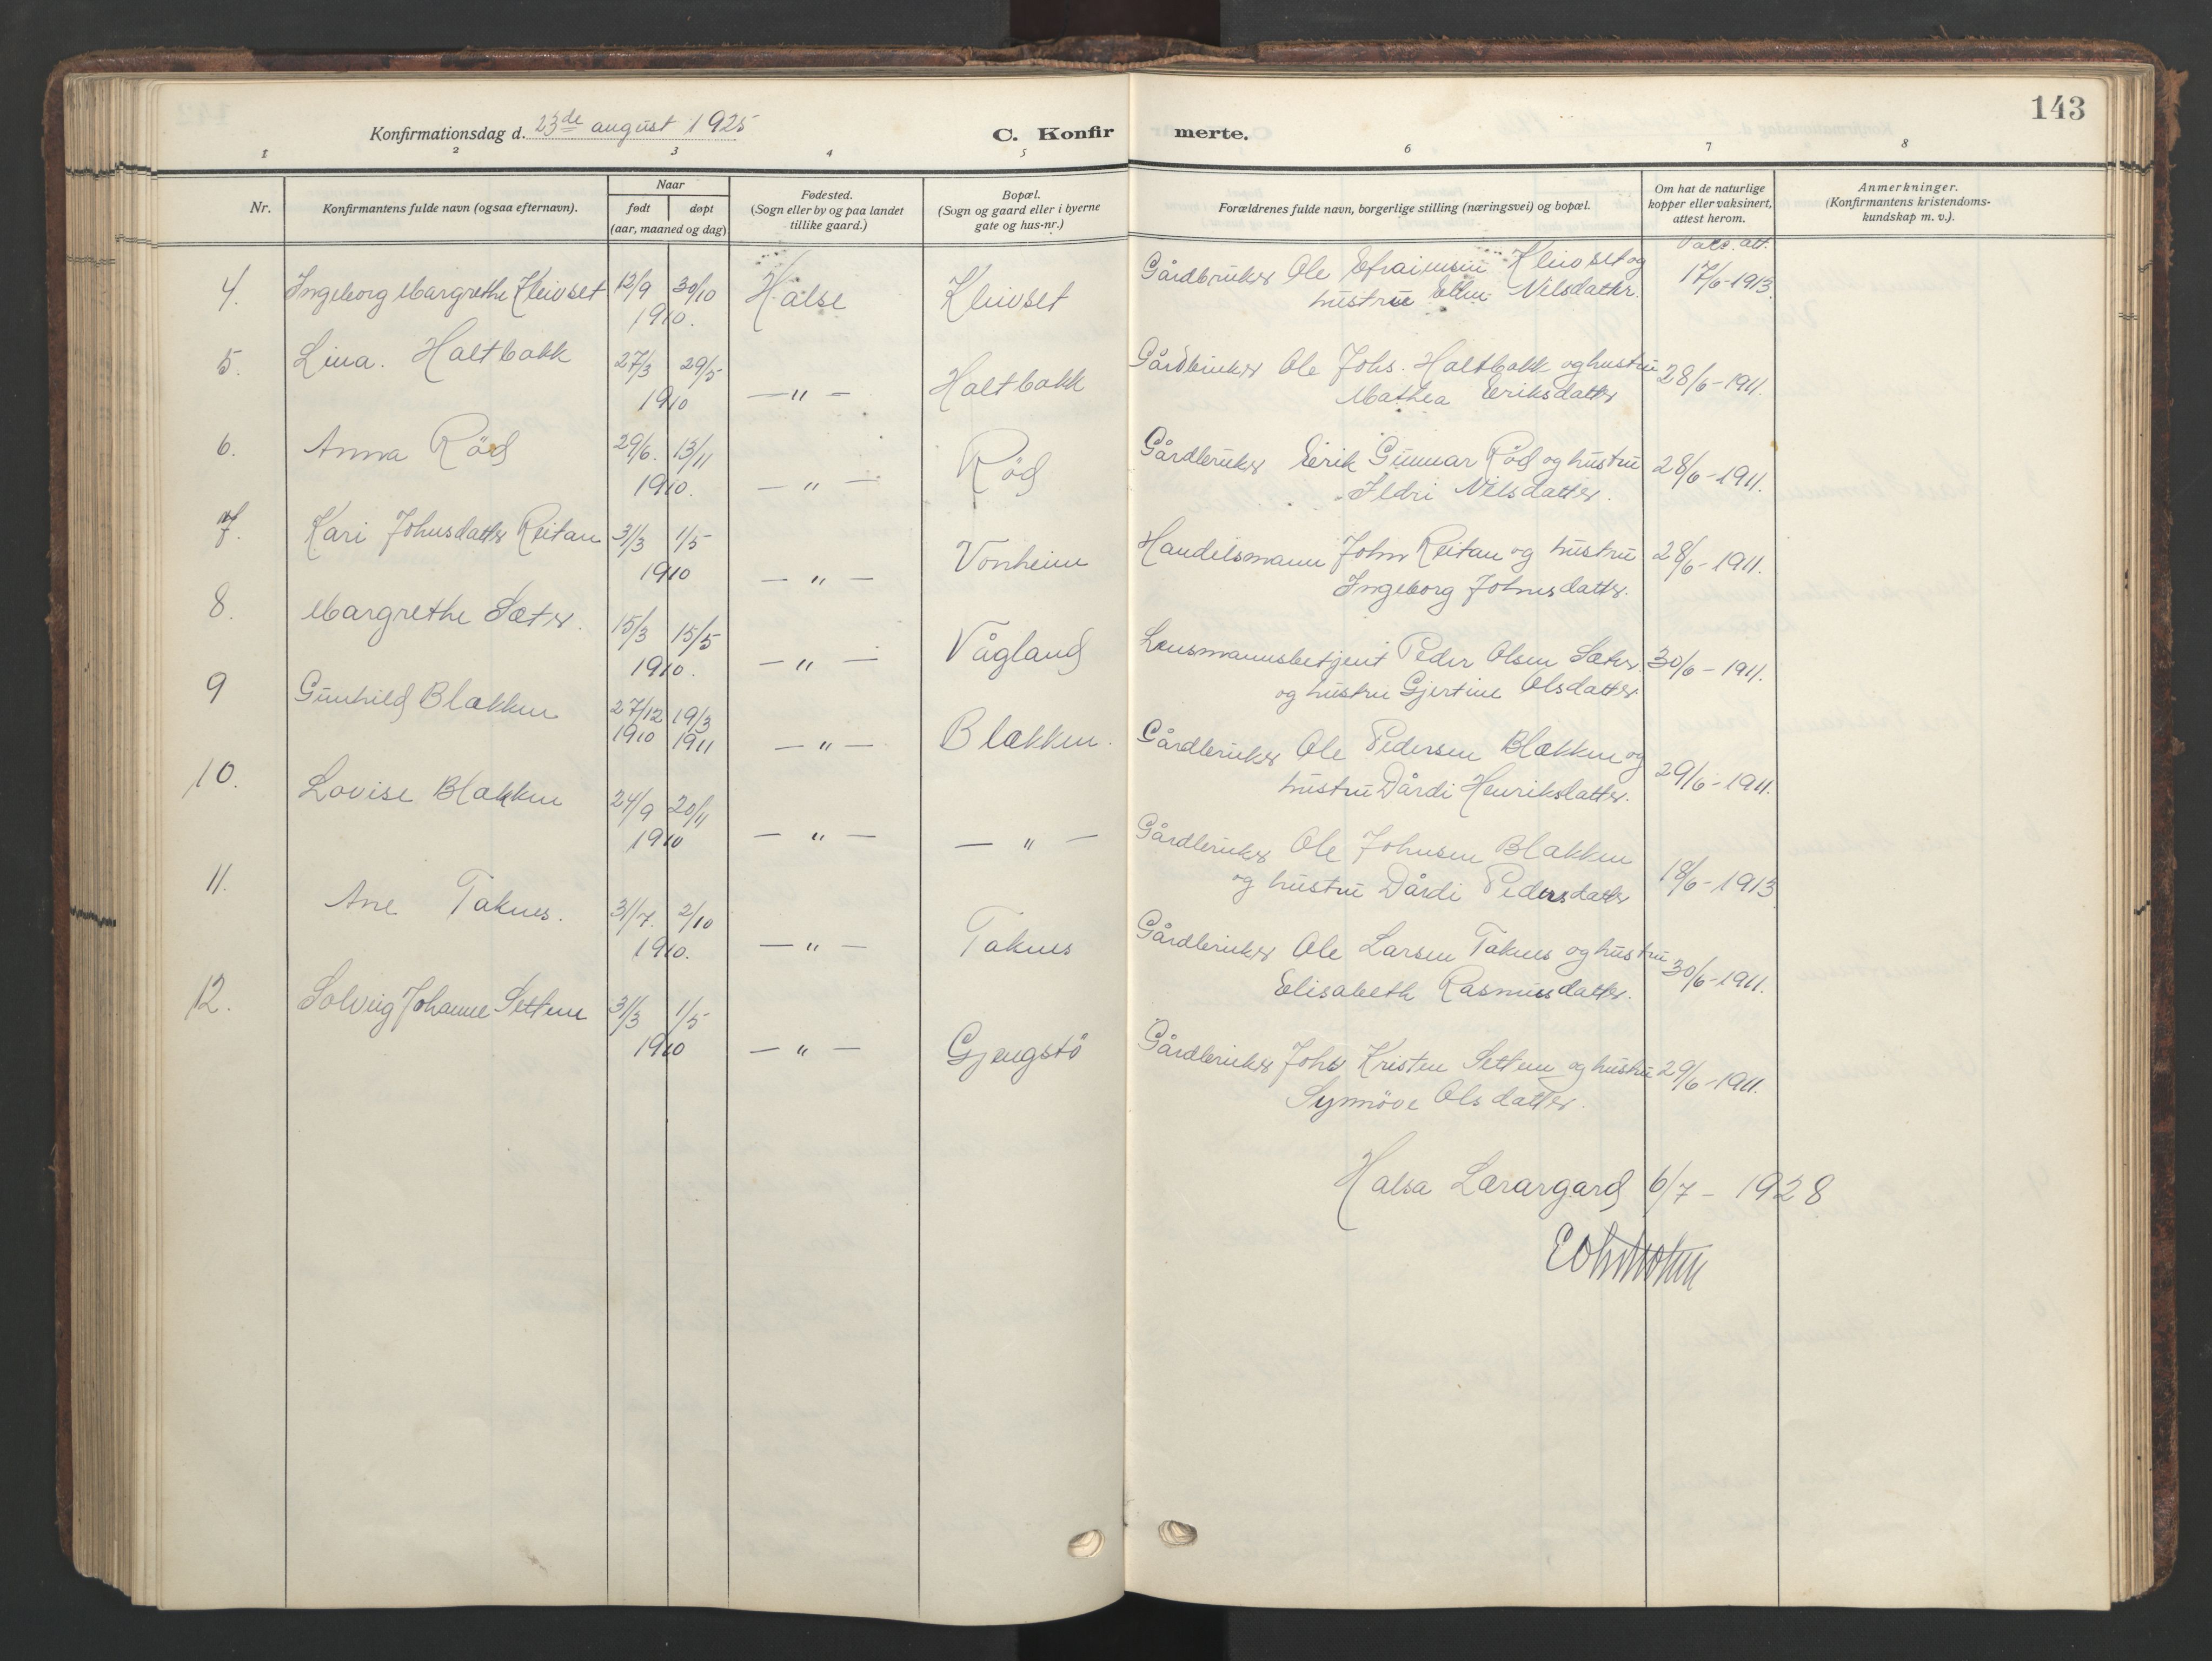 143
Konfirmationsdag d. 23de august 1925
C. Konfirmerte.
1 2 3 4 5 6 7 8
Nr.
Konfirmantens fulde navn (ogsaa efternavn).
Naar
født døpt
(aar, maaned og dag)
Fødested.
(Sogn eller by og paa landet
tillike gaard.)
Bopæl.
(Sogn og gaard eller i byerne
gate og hus-nr.)
Forældrenes fulde navn, borgerlige stilling (næringsvei) og bopæl.
Om hat de naturlige
kopper eller vaksinert,
attest herom.
Anmerkninger.
(Konfirmantens kristendoms-
kundskap m. v.).
4. Ingeborg Margrethe Kleivset 12/9 30/10 Halse Kleivset Gårdbruker Ole Efraimsen Kleivset og Vakc. att.
1910. hustru Ellen Nilsdatter. 17/6-1913.
5. Lina. Haltbakk 27/3 29/5 Gårdbruker Ole Johs. Haltbakk og hustru
1910 —"— Haltbakk Mathea Eriksdatter 28/6-1911.
6. Anna Röd 29/6. 13/11 Gårdbruker Eirik Gunnar Röd og hustru 28/6-1911.
1910. —"— Röd Ildri Nilsdatter.
7. Kari Johnsdatter Reitan 31/3 1/5 Vonheim Handelsmann John Reitan og hustru 28/6-1911.
1910 —"— Ingeborg Johnsdatter.
8. Margrethe Sæter. 15/3 15/5 Vågland Lensmannsbetjent Peder Olsen Sæter. 30/6-1911.
1910. —"— og hustru Gjertine Olsdatter.
9 Gunhild Blækken 27/12 19/3 Blækken. Gårdbruker Ole Pedersen Blækken og
1910 1911 —"— hustru Dårdi Henriksdatter. 29/6-1911.
10. Lovise Blækken 24/9 20/11 Gårdbruker Ole Johnsen Blækken
1910 —"— —"— og hustru Dårdi Pedersdatter 18/6-1913
11. Ane Taknes. 31/7. 2/10 Gårdbruker Ole Larsen Taknes og hustru
1910. —"— Taknes Elisabeth Rasmusdatter. 30/6-1911.
12. Solveig Johanne Settem 31/3 1/5 Gårdbruker John Kristen Settem og hustru 29/6-1911.
1910 —"— Gjengstö Synnöve Olsdatter.
Halsa Lærargard 6/7-1928